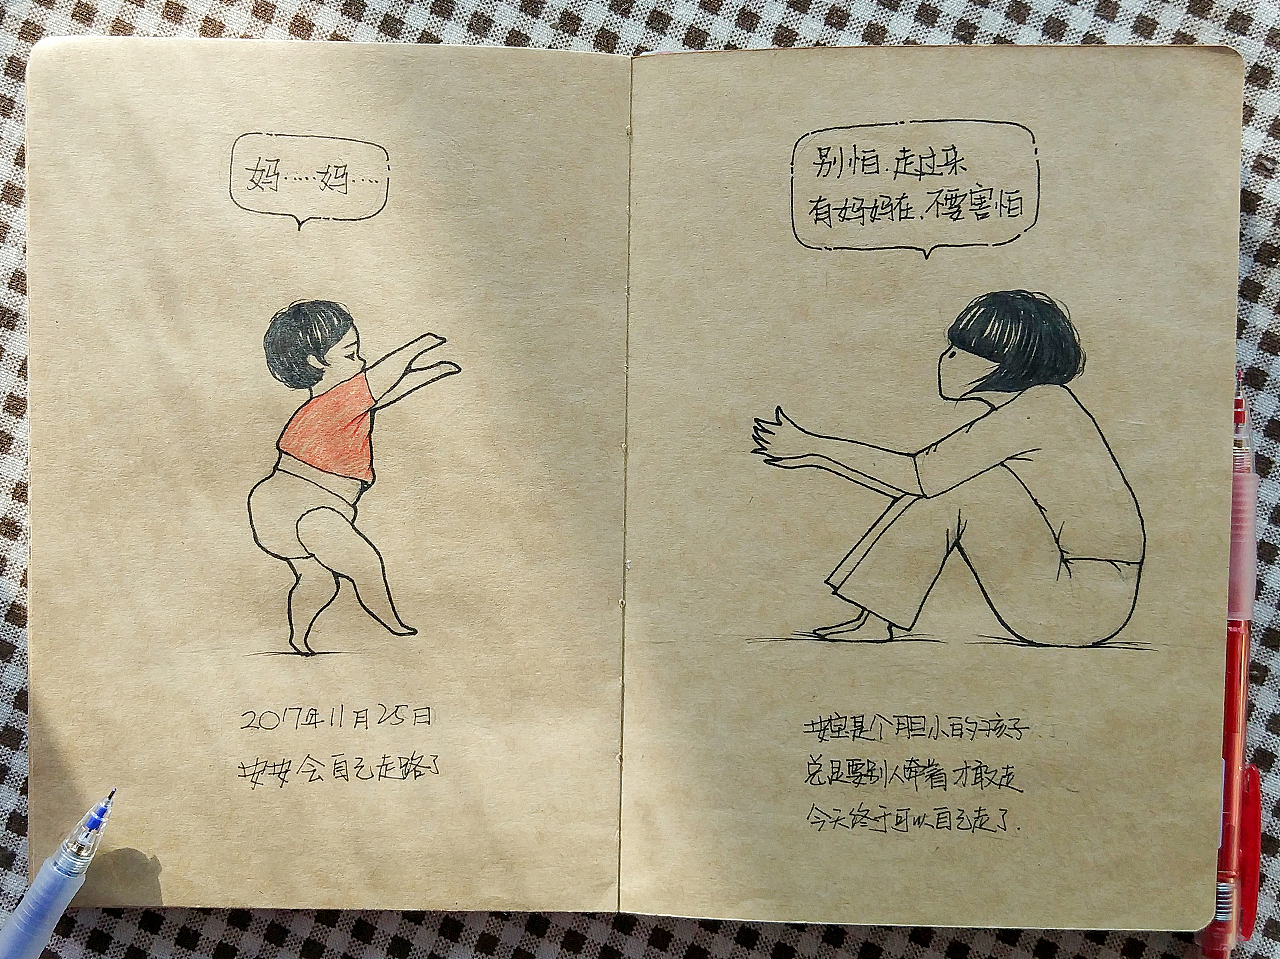 妈……妈…
2017年11月25日
安安会自己走路了
别怕.走过来
有妈妈在.不要害怕
安宝是个胆小的孩子
总是要别人牵着才敢走
今天终于可以自己走了.